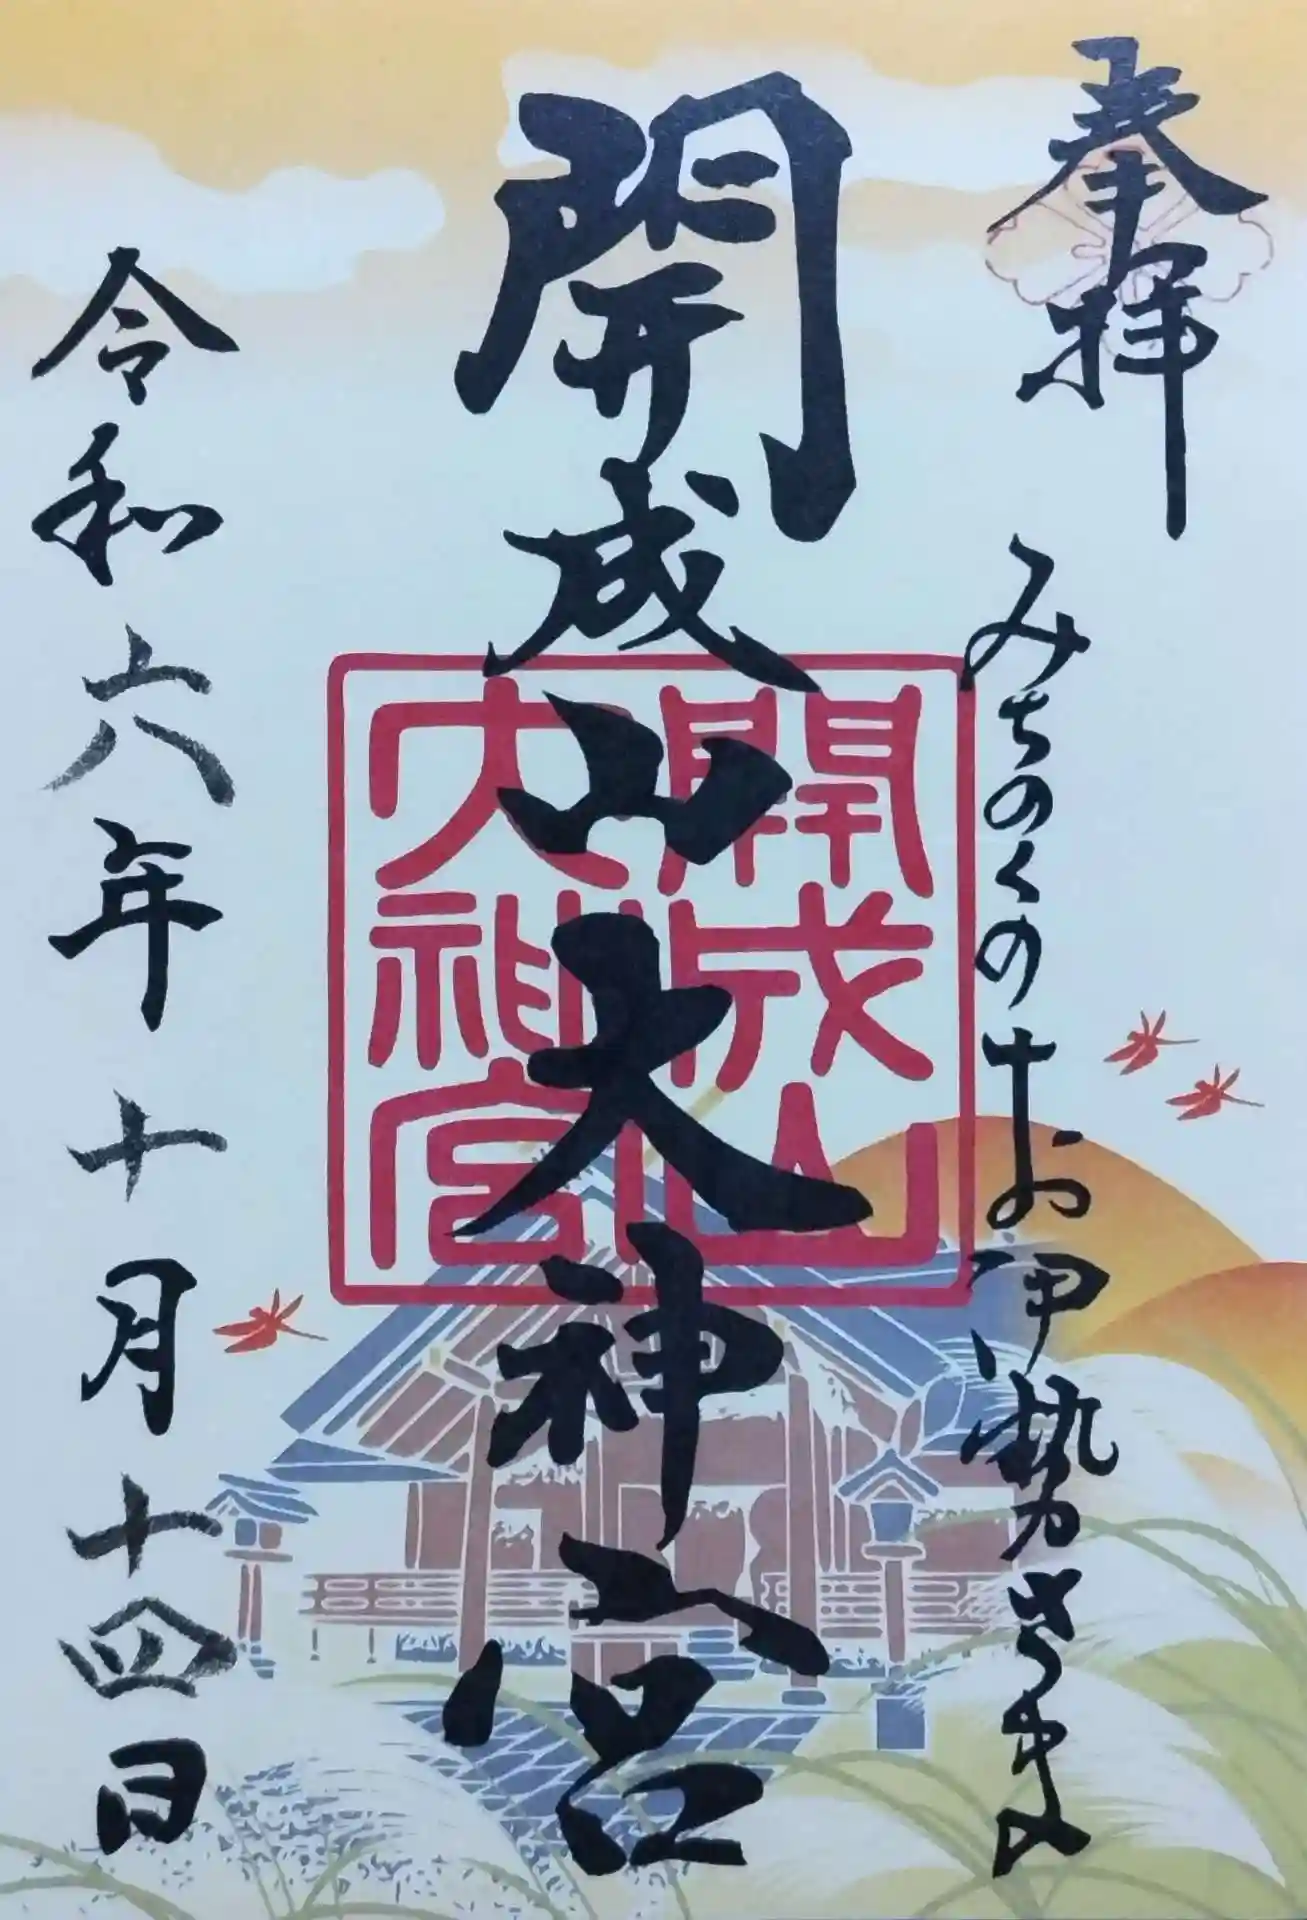 奉拝
みちのくのお伊勢さま
開成山大神宮
開成山
大神宮
令和六年十月十四日